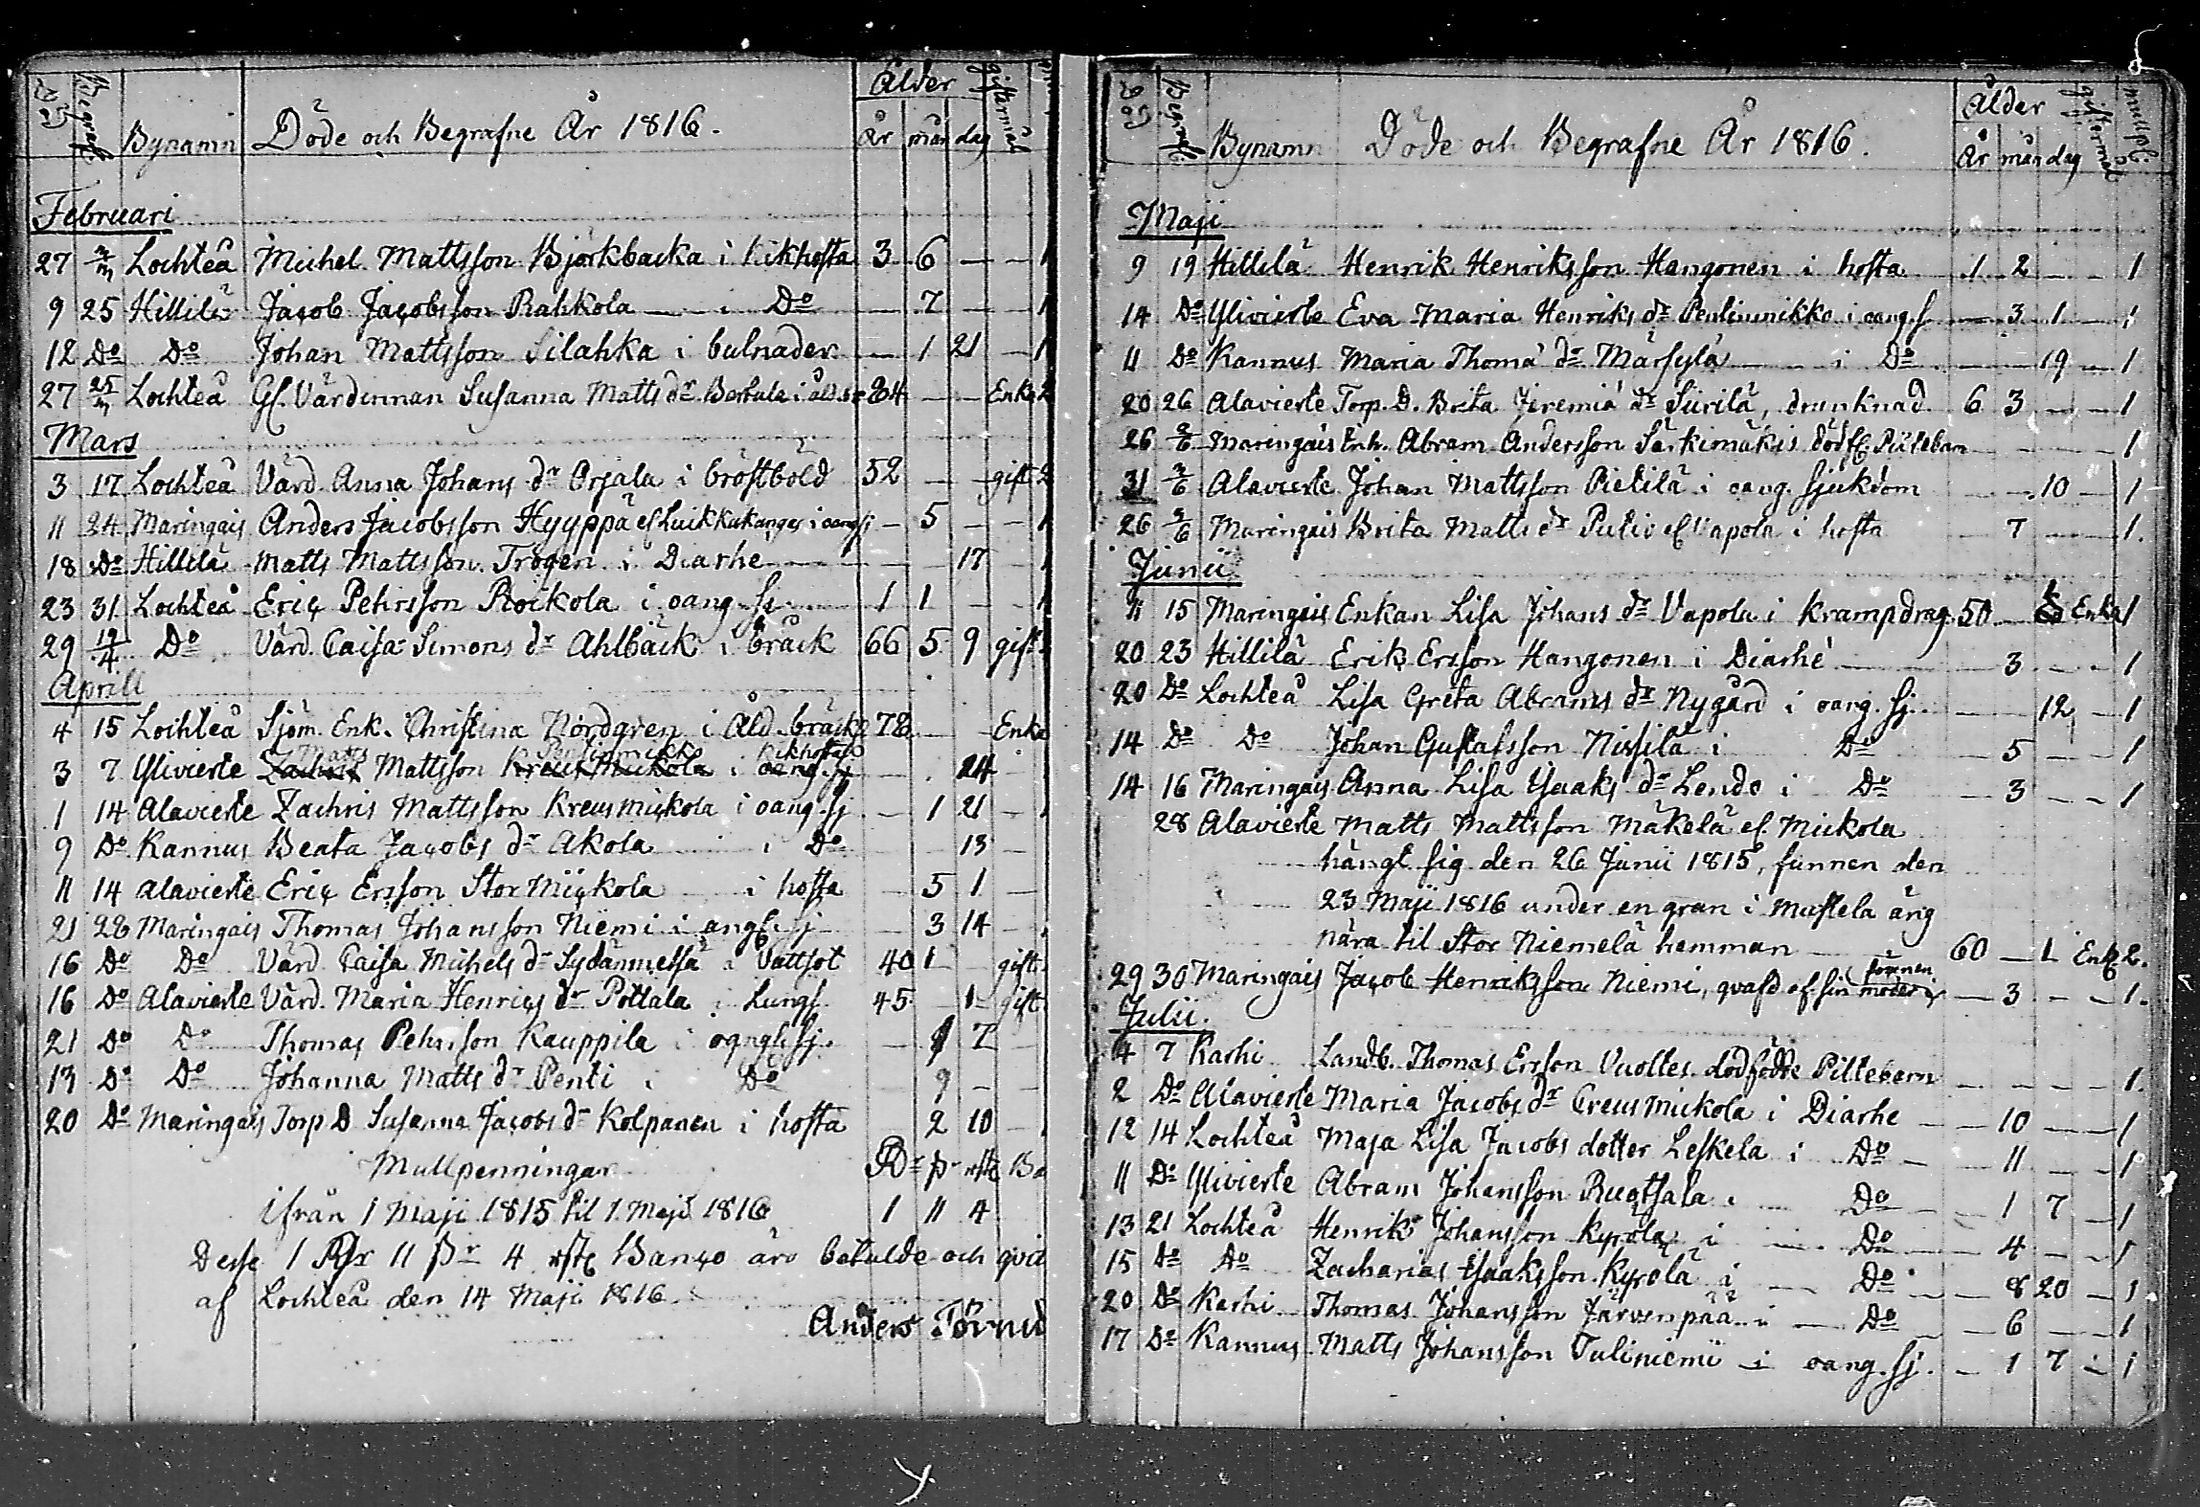 Död Begrafn: Bynamn Döde och Begrafne År 1816. Ålder År mån dag giftermål
Februari
27 3/m Lochteå Michel Mattsson Björkbacka i Kikhosta 3 6 — — 1
9 25 Hillilä Jacob Jacobsson Rahkola — i Do — 7 — 1
12 Do Do Johan Mattsson Silahka i bulnader — 1 21 — 1
27 25/m Lochteå Gl. Värdinnan Susanna Matts dr Bertula i åld. 84 — — Enka 2
Mars
3 17 Lochteå Värd. Anna Johans dr Orjala i bröstböld 52 — — gift 2
11 24 Maringais Anders Jacobsson Hyyppä el. Luikkukangas i oang. sj — 5 — — 1
18 Do Hillilä Matts Mattsson Trogen i Diarhe — 17 —
23 31 Lochteå Eric Pehrsson Roikola i oang. sj. 1 1 — — 1
29 12/4 Do Värd. Caisa Simons dr Ahlbäck i bråck 66 5 9 gift
Aprill
4 15 Lochteå Sjöm. Enk. Christina Nordgren i Åld. bräckl 78 — Enka
3 7 Ylivierte Zachris Matts Mattsson Kreus Mickola Pentinmikko i oang. sj kikhosta — 24
1 14 Alavierte Zachris Mattsson Kreusmickola i oang. sj. — 1 21 — 1
9 Do Kannus Beata Jacobs dr Akola — i Do 13 —
11 14 Alavierte Eric Ersson Stor Mickola — i hosta — 5 1 —
21 28 Maringais Thomas Johansson Niemi i angl. sj — 3 14 —
16 Do Do Värd. Caisa Michels dr Sydänmetsä i Vattsot 40 1 gift
16 Do Alavierte Värd. Maria Henrics dr Pottala i Lungs. 45 1 gift
21 Do Do Thomas Pehrsson Kauppila i ogngl. sj. — 1 7 —
13 Do Do Johanna Matts dr Penti i Do 9 —
20 Do Maringais Torp D Susanna Jacobs dr Kolpanen i hosta — 2 10 —
Mullpenningar Rdr sr rste Ba
ifrån 1 Maji 1815 til 1. Maji 1816 1 11 4
Desse 1 Rdr 11 sr 4 rste Banço äro betalde och qvit
af Lochteå den 14 Maji 1816.
Anders Törnud
Död Begrafn: Bynamn Döde och Begrafne År 1816. Ålder År mån dag giftermål mullp:
Maji
9 19 Hillilä Henrik Henriksson Hangonen i hosta 1 2 — — 1
14 Do Ylivierte Eva Maria Henriks dr Pentinmikko i oang. s — 3 1 — 1
11 Do Kannus Maria Thoma dr Märsylä — i Do — 19 — 1
20 26 Alavierte Torp. D. Brita Jeremiä dr Siirilä, drunknad 6 3 — — 1
26 2/6 Maringais Enk. Abram Andersson Särkimäkis dödf. Piltebarn — 1
31 2/6 Alavierte Johan Mattsson Pietilä i oang. sjukdom — 10 — 1
26 2/6 Maringais Brita Matts dr Putio el Vapola i hosta — 7 — 1.
Junii
11 15 Maringais Enkan Lisa Johans dr Vapola i Krampdrag. 50 — Enka 1
20 23 Hillilä Erik Ersson Hangonen i Diarhé — 3 — — 1
20 Do Lochteå Lisa Greta Abrams dr Nygård i oang. sj. — 12 — 1
14 Do Do Johan Gustafsson Nissilä i Do — 5 — — 1
14 16 Maringais Anna Lisa Isaaks dr Lendo i Do — 3 — — 1
28 Alavierte Matts Mattsson Mäkelä el. Mickola
hängt sig den 26 Junii 1815, funnen den
23 Maji 1816 under en gran i Mustela äng
nära til Stor Niemelä hemman — 60 — 1 Enk 2.
29 30 Maringais Jacob Henriksson Niemi, qvafd af sin moder i sömnen — 3 — — 1.
Julii.
4 7 Karhi Landb. Thomas Ersson Vuolles dödfödde Piltebarn — 1.
2 Do Alavierte Maria Jacobs dr Creus Mickola i Diarhe — 10 — 1
12 14 Lochteå Maja Lisa Jacobs dotter Leskela i Do — 11 — 1
11 Do Ylivierte Abram Johansson Rugtsala i Do — 1 7 — 1
13 21 Lochteå Henrik Johansson Kyrölä i Do — 4 — — 1
15 Do Do Zacharias Isaaksson Kyrölä i Do — 8 20 — 1
20 Do Karhi Thomas Johansson Järvenpää i — Do — 6 — 1
17 Do Kannus Matts Johansson Tuliniemi i oang. sj. — 1 7 — 1